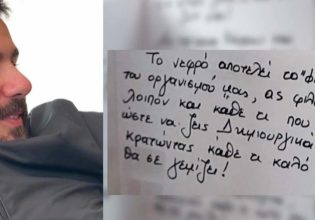 Το νεφρό αποτελεί το "φί
του οργανισμού μας, ας φιλ
λοιπόν και κάθε τι που
ώστε να ζεις Δημιουργικά
κρατώντας κάθε τι καλό
θα σε γεμίζει!